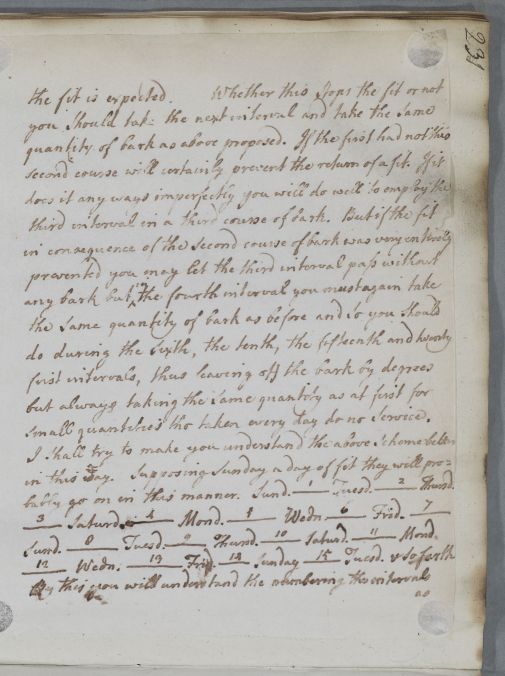 231
the fit is expected. Whether this stops the fit or not
you should take the next interval and take the same
quantity of bark as above proposed. If the first had not this
second course will certainly prevent the return of a fit. If it
does it any ways imperfectly you will do well to employ the
third interval in a third course of bark. But if the fit
in consequence of the second course of bark was very entirely
prevented you may let the third interval pass without
any bark but in the fourth interval you must again take
the same quantity of bark as before and so you should
do during the sixth, the tenth, the fifteenth and twenty
first intervals, thus leaving off the bark by degrees
but always taking the same quantity as at first for
small quantities tho taken every day do no service.
I shall try to make you understand the above scheme better
in this way. Supposing Sunday a day of fit they will pro=
bably go on in this manner. Sund. 1 Tuesd. 2 Thursd.
3 Saturd. 4 Mond. 5 Wedn. 6 Frid. 7
Sund. 8 Tuesd. 9 Thursd. 10 Saturd. 11 Mond.
12 Wedn. 13 Frid. 14 Sunday 15 Tuesd. & so forth
By this you will understand the numbering the intervals
as